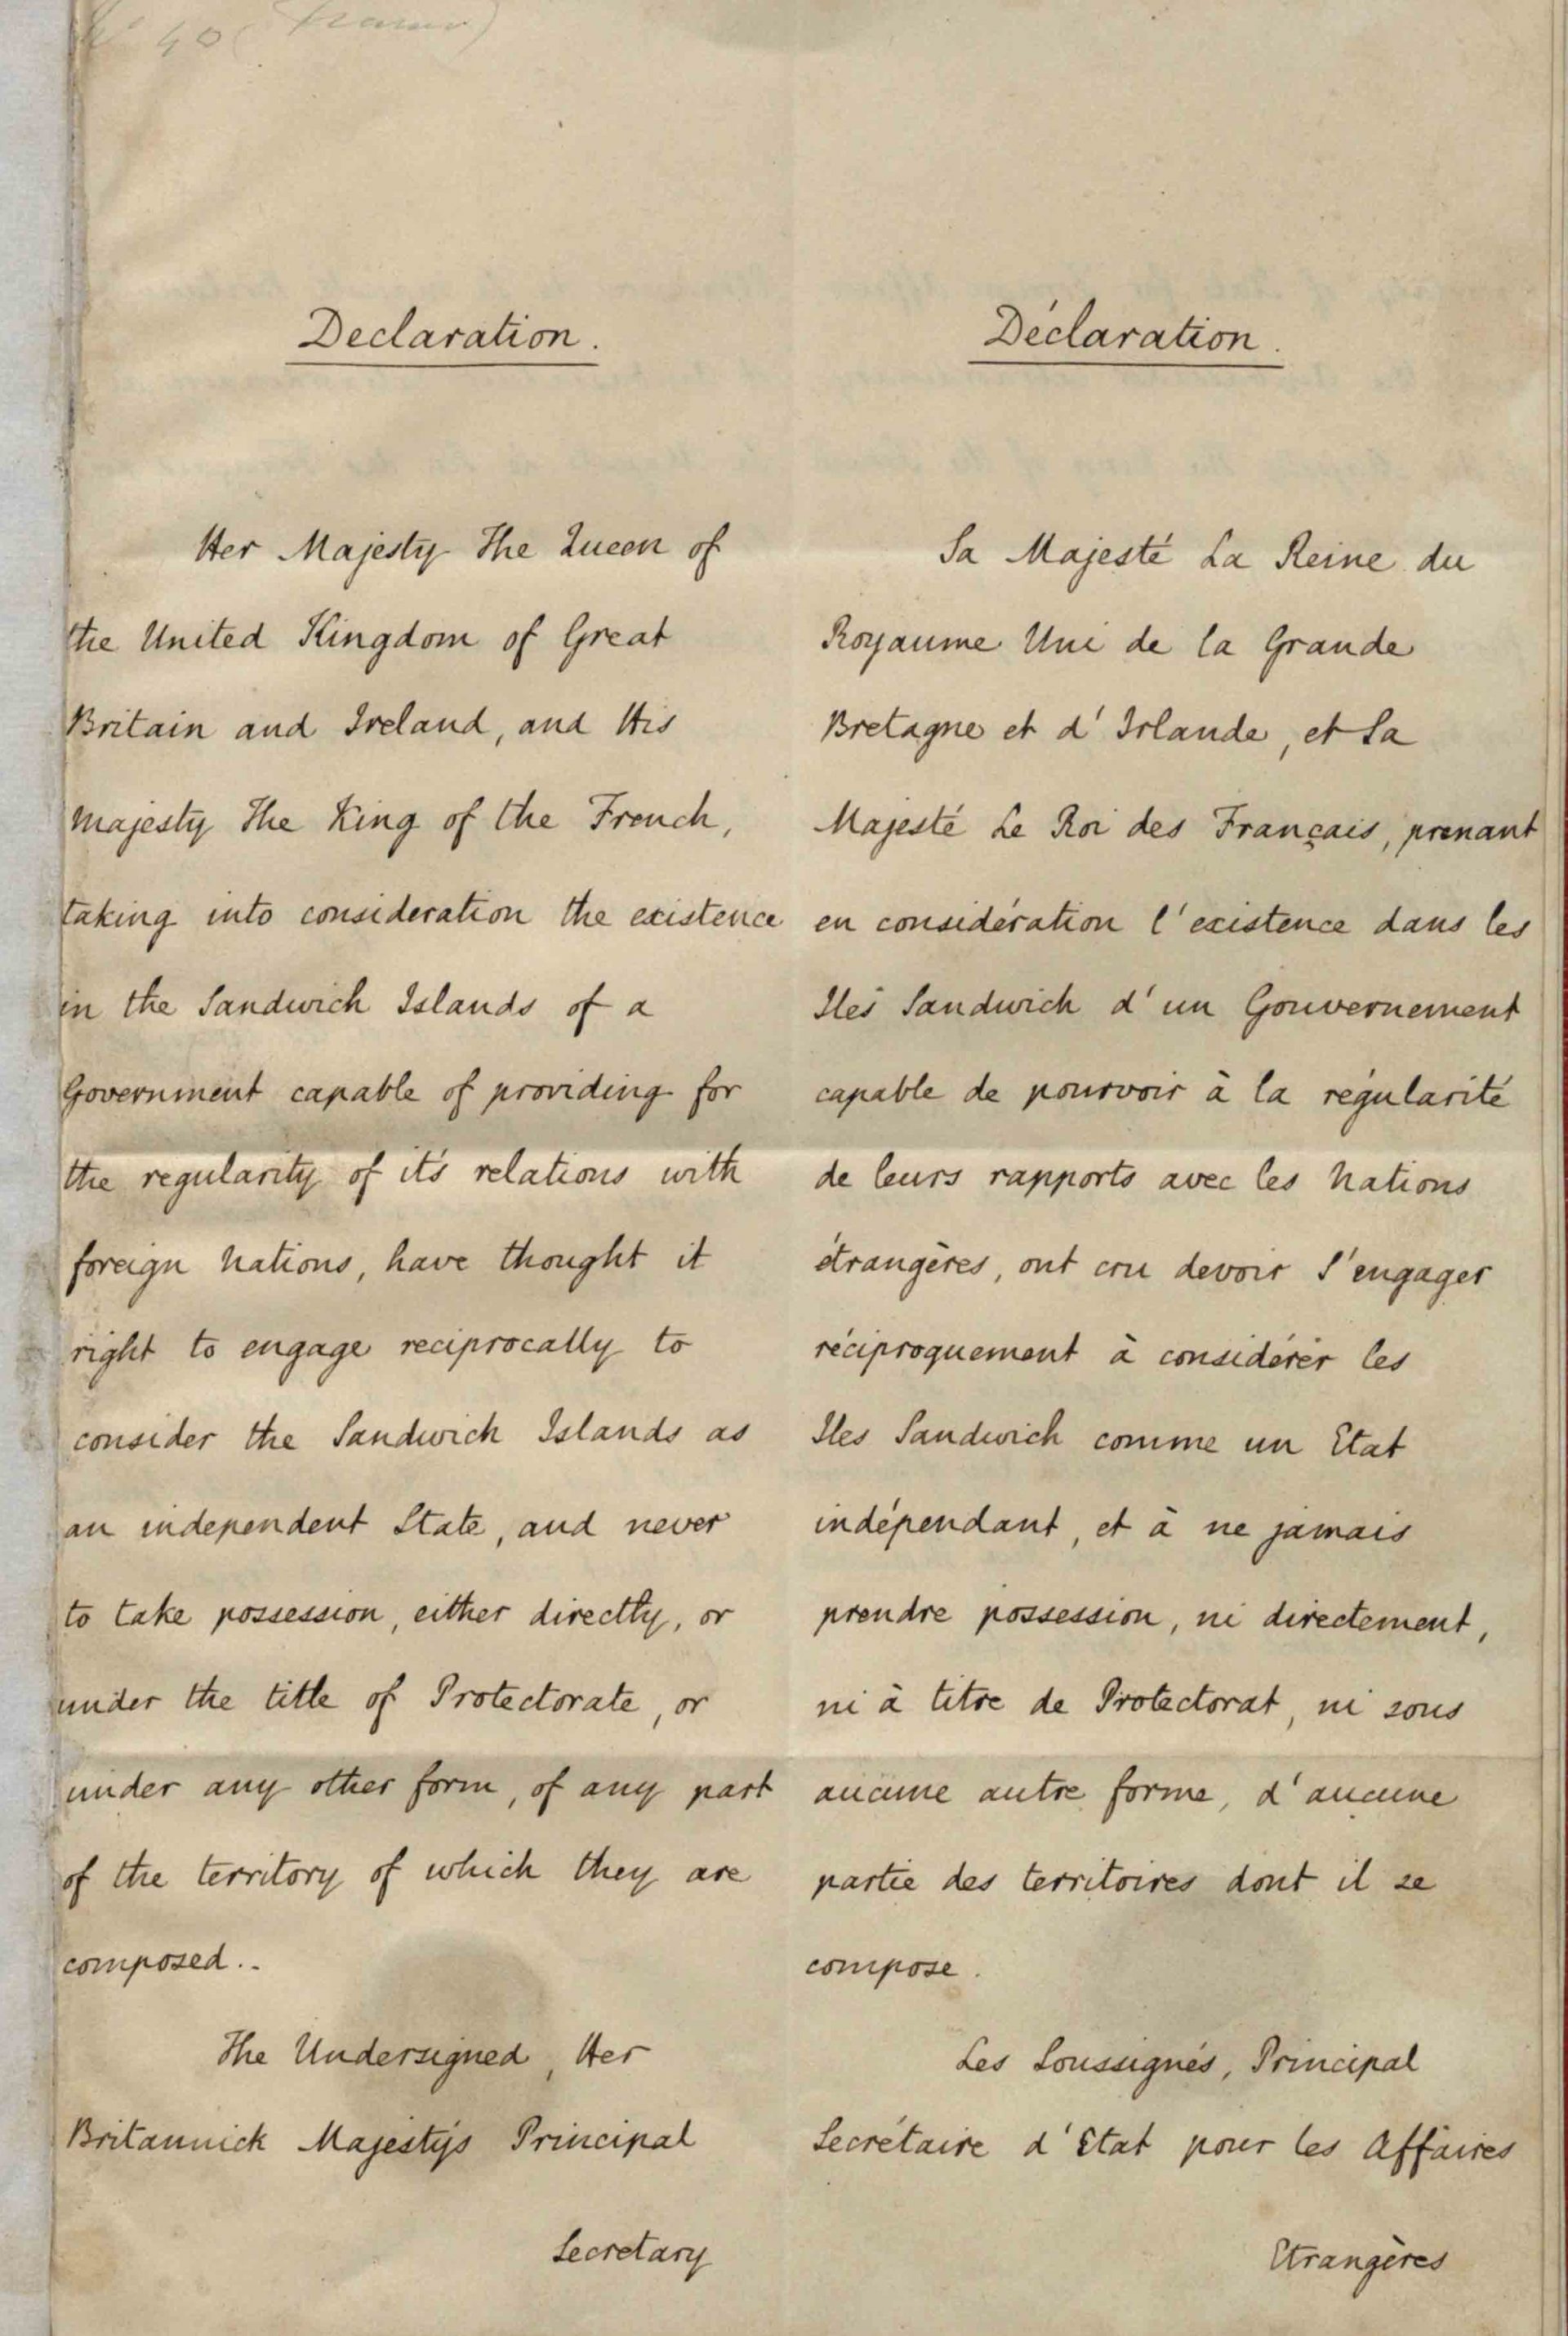 40
Declaration.
Her Majesty The Queen of
the United Kingdom of Great
Britain and Ireland, and His
Majesty The King of the French,
taking into consideration the existence
in the Sandwich Islands of a
Government capable of providing for
the regularity of it's relations with
foreign Nations, have thought it
right to engage reciprocally to
consider the Sandwich Islands as
an independent State, and never
to take possession, either directly, or
under the title of Protectorate, or
under any other form, of any part
of the territory of which they are
composed..
The Undersigned, Her
Britannick Majesty's Principal
Secretary
Déclaration.
Sa Majesté La Reine du
Royaume Uni de la Grande
Bretagne et d'Irlande, et Sa
Majesté Le Roi des Français, prenant
en considération l'existence dans les
Iles Sandwich d'un Gouvernement
capable de pourvoir à la régularité
de leurs rapports avec les Nations
étrangères, ont cru devoir S'engager
réciproquement à considérer les
Iles Sandwich comme un Etat
indépendant, et à ne jamais
prendre possession, ni directement,
ni à titre de Protectorat, ni sous
aucune autre forme, d'aucune
partie des territoires dont il se
compose.
Les Soussignés, Principal
Secrétaire d'Etat pour les Affaires
Etrangères